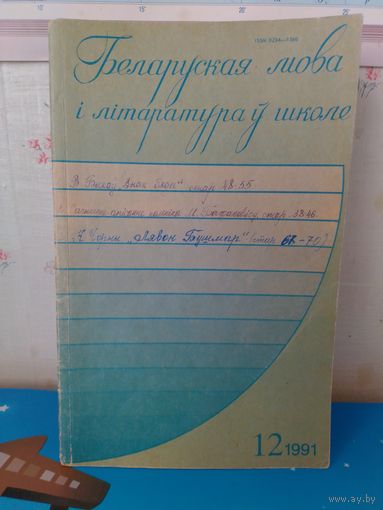 ISSN 0234—1360
Беларуская мова
і літаратура ў школе
В Быкаў „Знак бяды" стар. 48-55
М. Багдановіча, стар. 38-46
К Чорны „Лявон Бушмар" (стар 67-70)
12 1991
www.ay.by